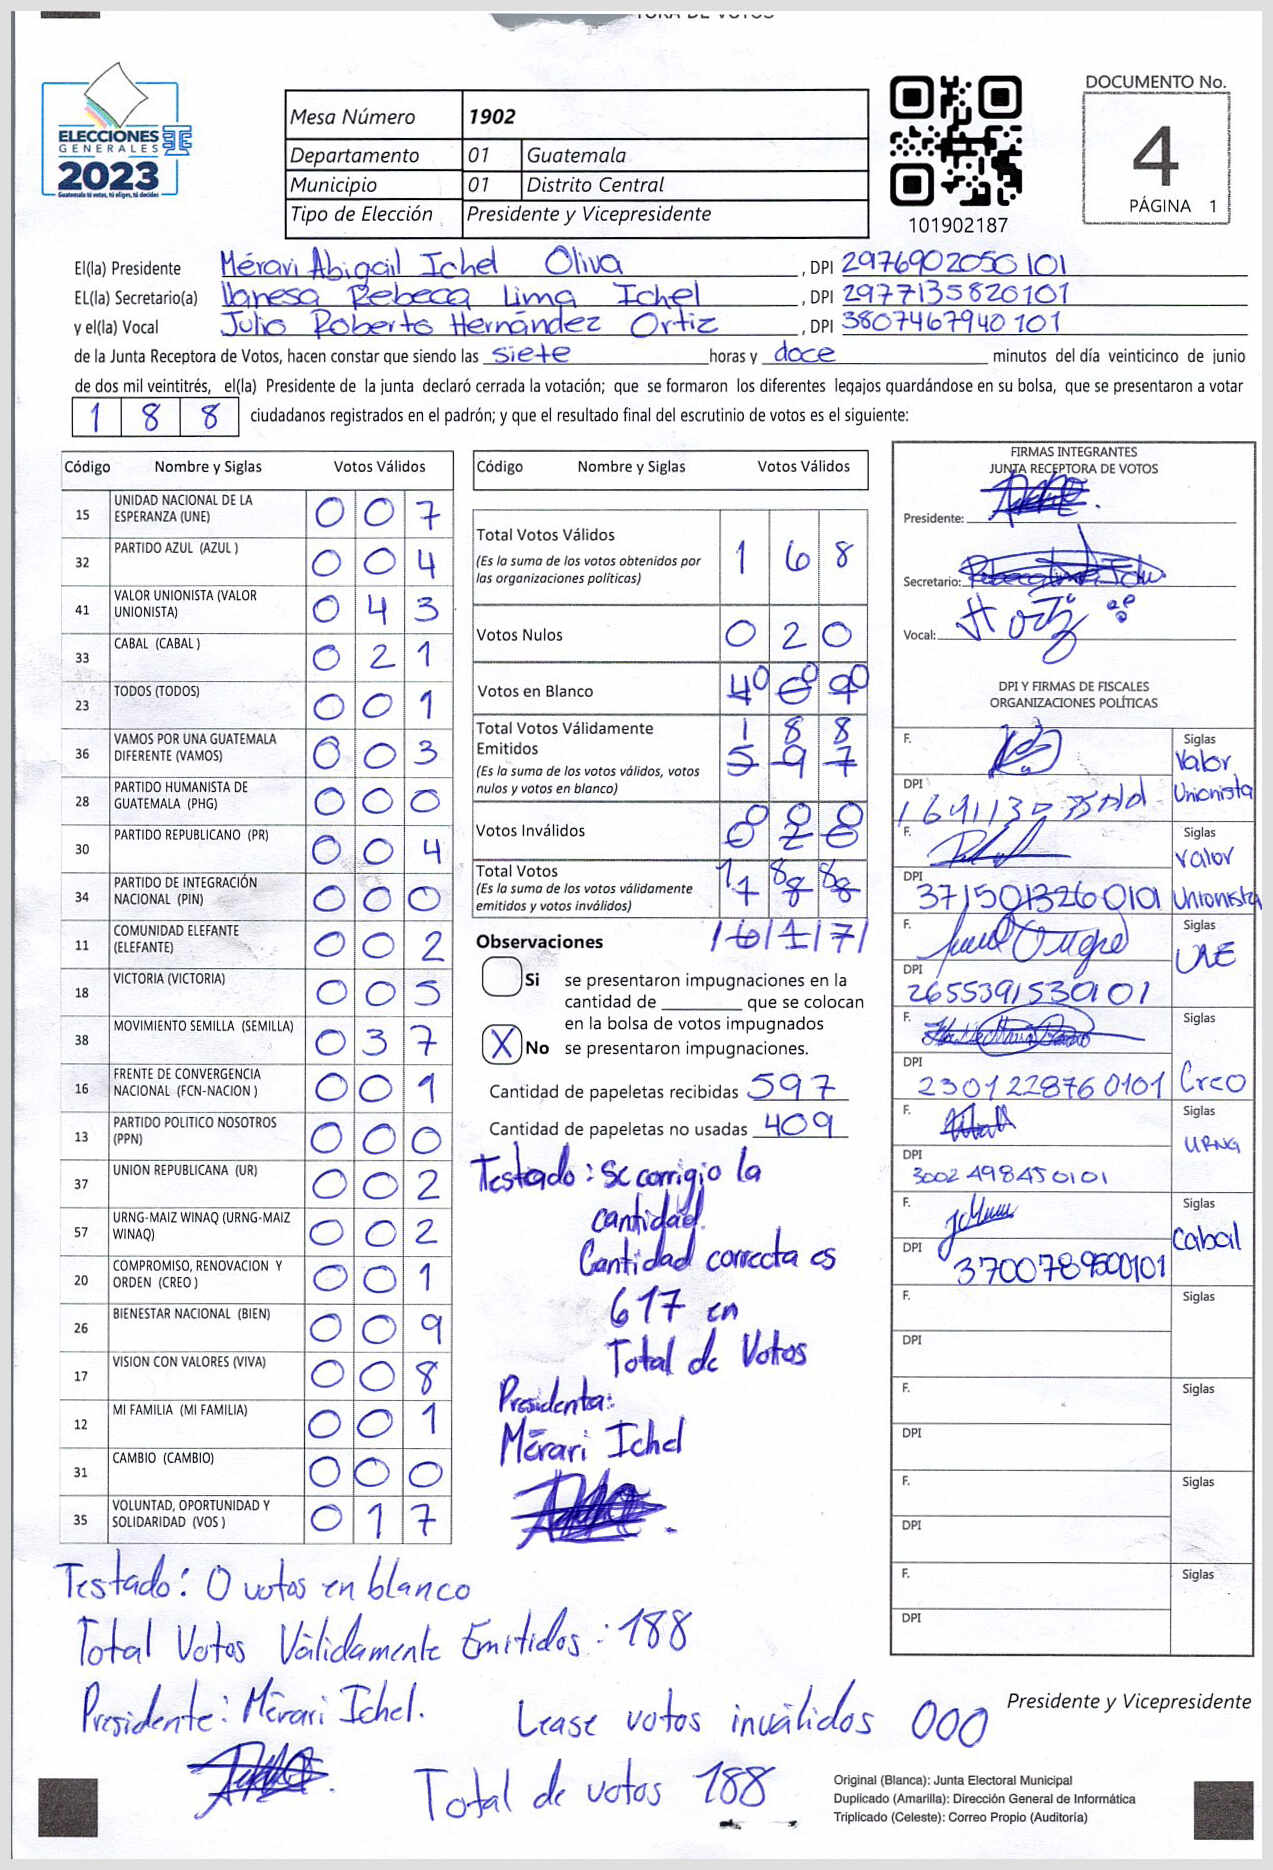 ELECCIONES
GENERALES
2023
Guatemala tú votas, tú eliges, tú decides
Mesa Número 1902
Departamento 01 Guatemala
Municipio 01 Distrito Central
Tipo de Elección Presidente y Vicepresidente
101902187
DOCUMENTO No.
4
PÁGINA 1
El(la) Presidente Mérari Abigail Ichel Oliva , DPI 2976902050101
EL(la) Secretario(a) Vanesa Rebeca Lima Ichel , DPI 2977135820101
y el(la) Vocal Julio Roberto Hernández Ortiz , DPI 3807467940101
de la Junta Receptora de Votos, hacen constar que siendo las siete horas y doce minutos del día veinticinco de junio
de dos mil veintitrés, el(la) Presidente de la junta declaró cerrada la votación; que se formaron los diferentes legajos guardándose en su bolsa, que se presentaron a votar
1 8 8 ciudadanos registrados en el padrón; y que el resultado final del escrutinio de votos es el siguiente:
Código Nombre y Siglas Votos Válidos
15 UNIDAD NACIONAL DE LA ESPERANZA (UNE) 0 0 7
32 PARTIDO AZUL (AZUL ) 0 0 4
41 VALOR UNIONISTA (VALOR UNIONISTA) 0 4 3
33 CABAL (CABAL ) 0 2 1
23 TODOS (TODOS) 0 0 1
36 VAMOS POR UNA GUATEMALA DIFERENTE (VAMOS) 0 0 3
28 PARTIDO HUMANISTA DE GUATEMALA (PHG) 0 0 0
30 PARTIDO REPUBLICANO (PR) 0 0 4
34 PARTIDO DE INTEGRACIÓN NACIONAL (PIN) 0 0 0
11 COMUNIDAD ELEFANTE (ELEFANTE) 0 0 2
18 VICTORIA (VICTORIA) 0 0 5
38 MOVIMIENTO SEMILLA (SEMILLA) 0 3 7
16 FRENTE DE CONVERGENCIA NACIONAL (FCN-NACION ) 0 0 1
13 PARTIDO POLITICO NOSOTROS (PPN) 0 0 0
37 UNION REPUBLICANA (UR) 0 0 2
57 URNG-MAIZ WINAQ (URNG-MAIZ WINAQ) 0 0 2
20 COMPROMISO, RENOVACION Y ORDEN (CREO ) 0 0 1
26 BIENESTAR NACIONAL (BIEN) 0 0 9
17 VISION CON VALORES (VIVA) 0 0 8
12 MI FAMILIA (MI FAMILIA) 0 0 1
31 CAMBIO (CAMBIO) 0 0 0
35 VOLUNTAD, OPORTUNIDAD Y SOLIDARIDAD (VOS ) 0 1 7
Código Nombre y Siglas Votos Válidos
Total Votos Válidos 1 6 8
(Es la suma de los votos obtenidos por
las organizaciones políticas)
Votos Nulos 0 2 0
Votos en Blanco 0 0 0
Total Votos Válidamente 1 8 8
Emitidos 5 9 7
(Es la suma de los votos válidos, votos
nulos y votos en blanco)
Votos Inválidos 0 0 0
Total Votos 1 8 8
(Es la suma de los votos válidamente
emitidos y votos inválidos)
Observaciones /6/1/7/
Si se presentaron impugnaciones en la
cantidad de ________ que se colocan
en la bolsa de votos impugnados
X No se presentaron impugnaciones.
Cantidad de papeletas recibidas 597
Cantidad de papeletas no usadas 409
Testado: Se corrigio la
cantidad.
Cantidad correcta es
617 en
Total de Votos
Presidenta:
Mérari Ichel
FIRMAS INTEGRANTES
JUNTA RECEPTORA DE VOTOS
Presidente:
Secretario:
Vocal:
DPI Y FIRMAS DE FISCALES
ORGANIZACIONES POLÍTICAS
F. Siglas
Valor
DPI Unionista
F. Siglas
Valor
DPI 371501326 0101 Unionista
F. Siglas
UNE
DPI 2655391530101
F. Siglas
DPI 2301228760101 Creo
F. Siglas
URNG
DPI 3002498450101
F. Siglas
Cabal
DPI 3700789500101
F. Siglas
DPI
F. Siglas
DPI
F. Siglas
DPI
F. Siglas
DPI
Testado: 0 votos en blanco
Total Votos Válidamente Emitidos: 188
Presidente: Mérari Ichel.
Lease votos inválidos 000
Total de votos 188
Presidente y Vicepresidente
Original (Blanca): Junta Electoral Municipal
Duplicado (Amarilla): Dirección General de Informática
Triplicado (Celeste): Correo Propio (Auditoría)